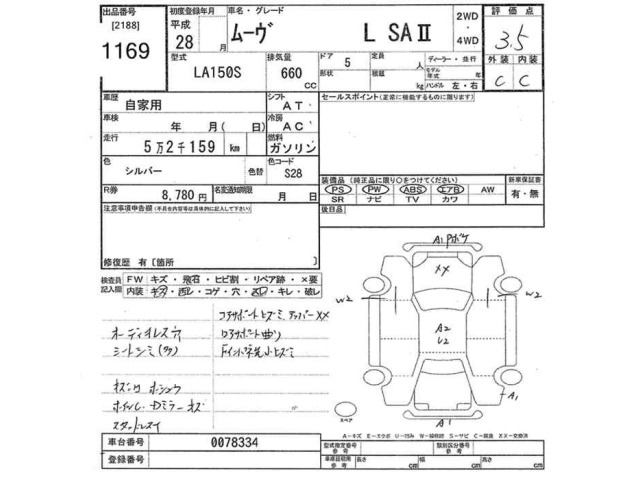 出品番号 初度登録年月 車名・グレード 2WD 評価点
[2188] 平成 ムーヴ L SAⅡ ・ 3.5
1169 28 月 4WD
型式 排気量 ドア 5 定員 人 ディーラー・並行 外装 内装
LA150S 660 CC 形状 積載 kg モデル年式 年 ハンドル 左・右 C C
車歴 自家用 シフト AT セールスポイント(正常に機能するものに限ります)
車検 年 月( 日) 冷房 AC
走行 5万2千159 km 燃料 ガソリン
色 シルバー 色替 色コード S28 装備品 (純正品に限り○をつけてください) 新車保証書
R券 8,780 円 名変通知期限 月 日 PS PW ABS エアB AW 有・無
SR ナビ TV カワ
注意事項申告欄(不具合内容等は具体的に記入して下さい) 後日品
修復歴 有〔箇所 〕
検査員 FW キズ・飛石・ヒビ割・リペア跡・×要
記入欄 内装 キズ・汚レ・コゲ・穴・凹・キレ・破レ
コアサポートヒズミ、アッパーXX
オーディオレス
シートシミ(多)
コアサポート曲り
ホイール・Dミラーキズ
スタッドレス
A1 Pボケ
XX
W2
W2
A2
U2
A1
A1
スペア
A-キズ E-エクボ U-凹み W-補修跡 S-サビ C-腐食 XX-交換済
車台番号 0078334 型式指定番号 参考 類別区分番号 参考
登録番号 車庫証明用 参考 長さ cm 幅 cm 高さ cm